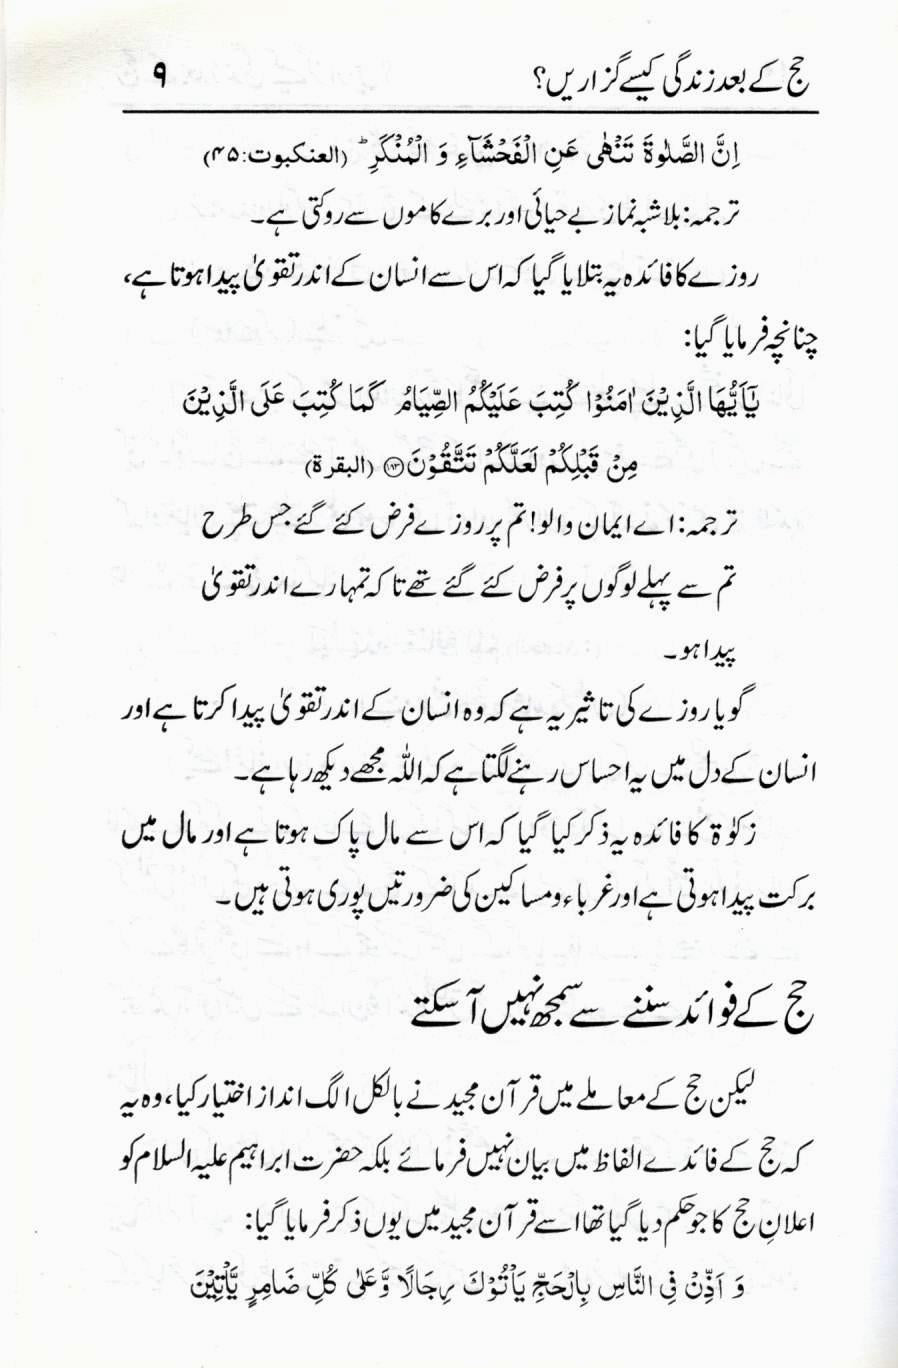 حج کے بعد زندگی کیسے گزاریں؟ ۹
اِنَّ الصَّلٰوةَ تَنْهٰى عَنِ الْفَحْشَآءِ وَ الْمُنْكَرِ ؕ (العنکبوت:۴۵)
ترجمہ: بلاشبہ نماز بے حیائی اور برے کاموں سے روکتی ہے۔
روزے کا فائدہ یہ بتلایا گیا کہ اس سے انسان کے اندر تقویٰ پیدا ہوتا ہے،
چنانچہ فرمایا گیا:
يٰٓاَيُّهَا الَّذِيْنَ اٰمَنُوْا كُتِبَ عَلَيْكُمُ الصِّيَامُ كَمَا كُتِبَ عَلَى الَّذِيْنَ
مِنْ قَبْلِكُمْ لَعَلَّكُمْ تَتَّقُوْنَ ﴿۱۸۳﴾ (البقرۃ)
ترجمہ: اے ایمان والو! تم پر روزے فرض کئے گئے جس طرح
تم سے پہلے لوگوں پر فرض کئے گئے تھے تاکہ تمہارے اندر تقویٰ
پیدا ہو۔
گویا روزے کی تاثیر یہ ہے کہ وہ انسان کے اندر تقویٰ پیدا کرتا ہے اور
انسان کے دل میں یہ احساس رہنے لگتا ہے کہ اللہ مجھے دیکھ رہا ہے۔
زکوٰۃ کا فائدہ یہ ذکر کیا گیا کہ اس سے مال پاک ہوتا ہے اور مال میں
برکت پیدا ہوتی ہے اور غرباء ومساکین کی ضرورتیں پوری ہوتی ہیں۔
حج کے فوائد سننے سے سمجھ نہیں آسکتے
لیکن حج کے معاملے میں قرآن مجید نے بالکل الگ انداز اختیار کیا، وہ یہ
کہ حج کے فائدے الفاظ میں بیان نہیں فرمائے بلکہ حضرت ابراہیم علیہ السلام کو
اعلانِ حج کا جو حکم دیا گیا تھا اسے قرآن مجید میں یوں ذکر فرمایا گیا:
وَ اَذِّنْ فِی النَّاسِ بِالْحَجِّ يَاْتُوْكَ رِجَالًا وَّعَلٰى كُلِّ ضَامِرٍ يَّاْتِيْنَ